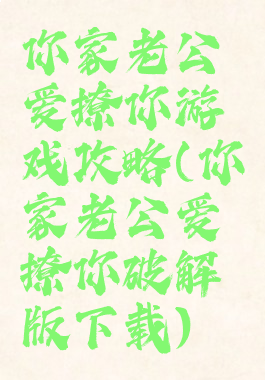 你家老公
爱撩你游
戏攻略(你
家老公爱
撩你破解
版下载)